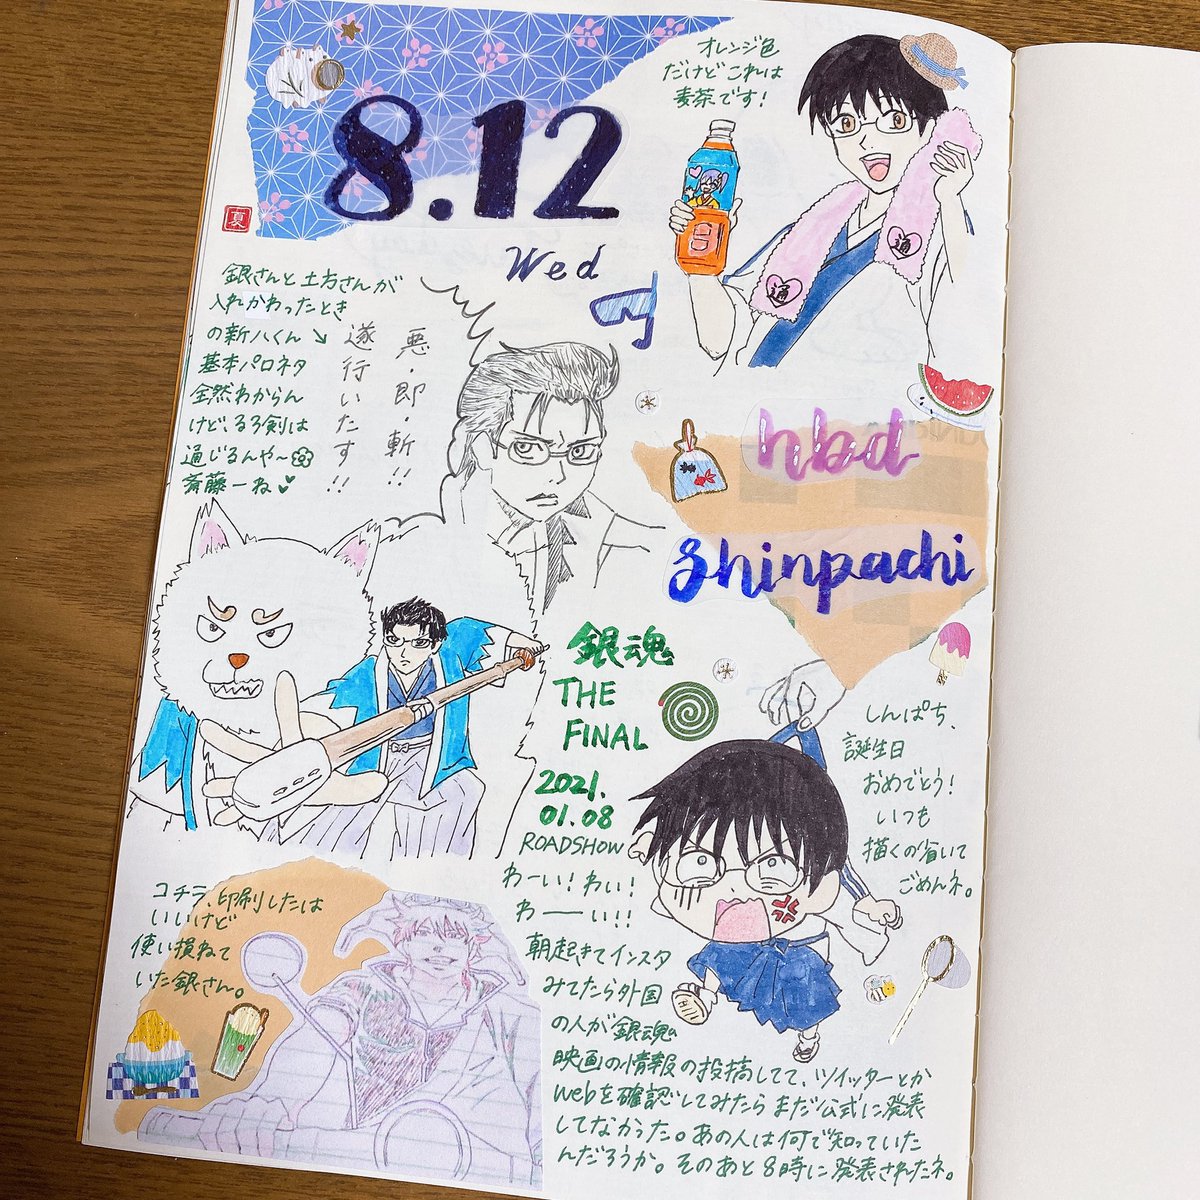 8.12
Wed
夏
オレンジ色
だけどこれは
麦茶です!
通
通
銀さんと土方さんが
入れかわったとき
の新八くん↘
基本パロネタ
全然わからん
けど、るろ剣は
通じるんや〜
斎藤一ね
悪・即・斬!!
遂行いたす!!
hbd
Shinpachi
銀魂
THE
FINAL
2021.
01.08
ROADSHOW
わーい!わい!
わ――い!!
朝起きてインスタ
みてたら外国
の人が銀魂の
映画の情報の投稿してて、ツイッターとか
webを確認してみたらまだ公式に発表
してなかった。あの人は何で知っていた
んだろうか。そのあと8時に発表されたネ。
しんぱち、
誕生日
おめでとう!
いつも
描くの省いて
ごめんネ。
コチラ、印刷したは
いいけど
使い損ねて
いた銀さん。